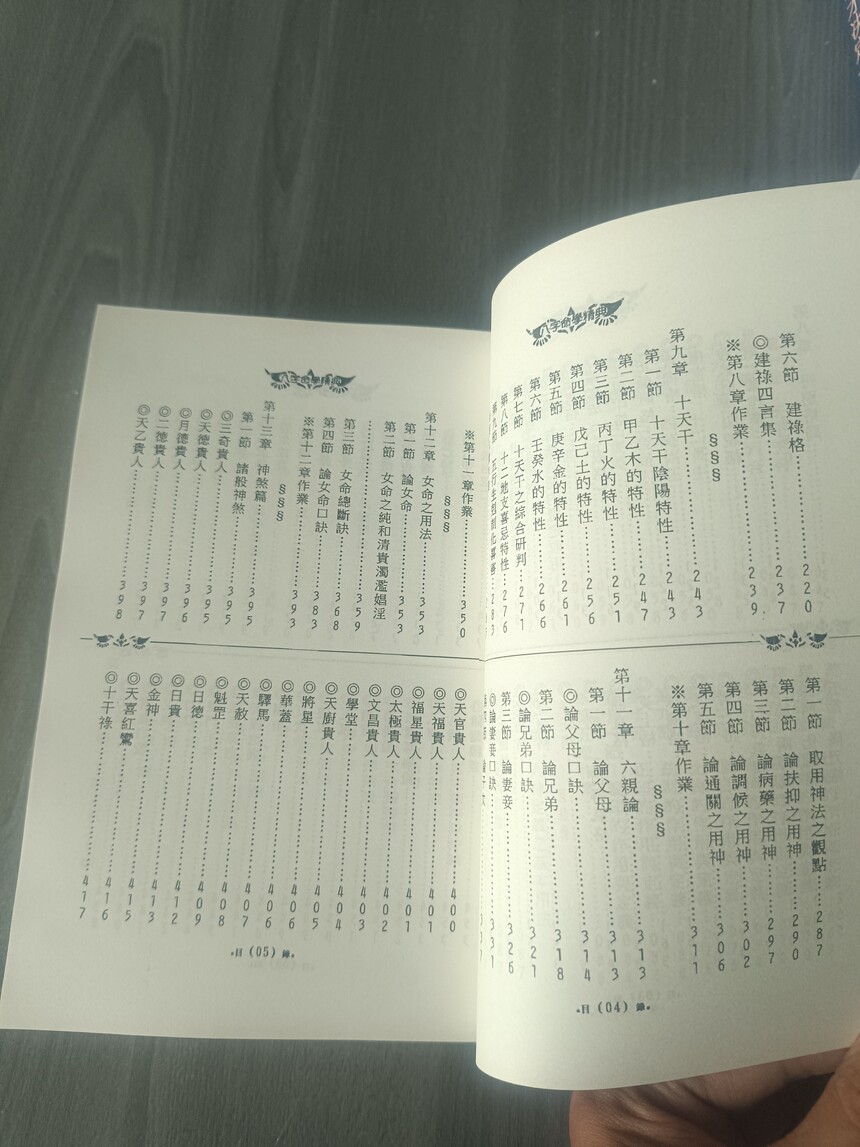 八字命學精典
第六節 建祿格……220
◎建祿四言集……237
※第八章作業……239
§§§
第九章 十天干……243
第一節 十天干陰陽特性……243
第二節 甲乙木的特性……247
第三節 丙丁火的特性……251
第四節 戊己土的特性……256
第五節 庚辛金的特性……261
第六節 壬癸水的特性……266
第七節 十天干之綜合研判……271
第八節 十二地支喜忌特性…276
第九節
第一節 取用神法之觀點……287
第二節 論扶抑之用神……290
第三節 論病藥之用神……297
第四節 論調候之用神……302
第五節 論通關之用神……306
※第十章作業……311
§§§
第十一章 六親論……313
第一節 論父母……313
◎論父母口訣……314
第二節 論兄弟……318
◎論兄弟口訣……321
第三節 論妻妾……326
◎論妻妾口訣……331
•目(04)錄•
八字命學精典
※第十一章作業……350
§§§
第十二章 女命之用法……353
第一節 論女命……353
第二節 女命之純和清貴濁濫娼淫
……359
第三節 女命總斷訣……368
第四節 論女命口訣……383
※第十二章作業……393
§§§
第十三章 神煞篇……395
第一節 諸般神煞……395
◎三奇貴人……395
◎天德貴人……396
◎月德貴人……397
◎二德貴人……397
◎天乙貴人……398
◎天官貴人……400
◎天福貴人……401
◎福星貴人……401
◎太極貴人……402
◎文昌貴人……403
◎學堂……403
◎天廚貴人……404
◎將星……405
◎華蓋……406
◎驛馬……406
◎天赦……407
◎魁罡……408
◎日德……409
◎日貴……412
◎金神……413
◎天喜紅鸞……415
◎十干祿……417
•目(05)錄•